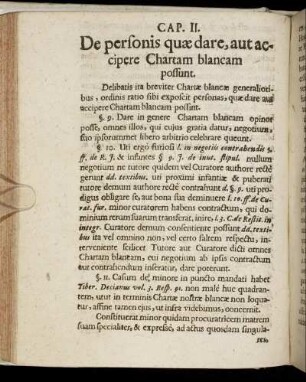 CAP. II.
De personis quæ dare, aut ac-
cipere Chartam blancam
possunt.
Delibatis ita breviter Chartæ blancæ generaliori-
bus, ordinis ratio sibi exposcit personas, quæ dare aut
accipere Chartam blancam possint.
§. 9. Dare in genere Chartam blancam opinor
posse, omnes illos, qui cujus gratia datur, negotium,
suo ipsorummet libero arbitrio celebrare queunt.
§ 10. Uti ergo furiosi l. in negotiis contrahendis
ff. de R. J. & infantes § 9. J. de inut. stipul. nullum
negotium ne tutore quidem vel Curatore authore rectè
gerunt dd. textibus, uti proximi infantiæ & puberes
tutore demum authore rectè contrahunt d. §. 9. uti pro-
digus obligare se, aut bona sua deminuere l. 10. ff. de Cu-
rat. fur. minor curatorem habens contractum, qui do-
minium rerum suarum transferat, inire, l. 3. C. de Restit. in
integr. Curatore demum consentiente possunt dd. textí-
bus ita vel omnino non, vel certo saltem respectu, in-
terveniente scilicet Tutore aut Curatore dicti omnes
Chartam blancam, cui negotium ab ipsis contractum
aut contrahendum inseratur, dare poterunt.
§. 11. Casum de minore in puncto mandati habet
Tiber. Decianus vol. 3. Resp. 91. non malè huc quadran-
tem, ut ut in terminis Chartæ nostræ blancæ non loqua-
tur, affine tamen ejus, ut infra videbimus, concernit.
Constituerat minor quidam procuratricem matrem
suam specialiter, & expressè, ad actus quosdam singula-